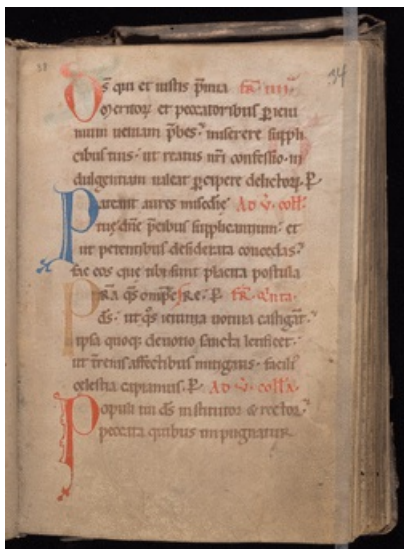 34
Ds qui et iustis p̄mia fr̄ iiii
meritoꝝ et peccatoribus ꝑ ieiu
nium ueniam p̄bes· miserere suppli
cibus tuis· ut reatus nr̄i confessio· in
dulgentiam ualeat ꝑcipere delictoꝝ· ꝑ
Pateant aures misc̄die Ad v̄· coll̄·
tue dn̄e p̄cibus supplicantium· et
ut petentibus desiderata concedas·
fac eos que tibi sunt placita postula
Pr̄a qs̄ omp̄c re· ꝑ fr̄· q̇nta·
ds̄· ut qs̄ ieiunia uotiua castigāt·
ipsa quoqꝫ deuotio sancta letificet·
ut t̄renis affectibus mitigatis· facili
celestia capiamus· ꝑ Ad v̄· coll̄a·
Populi tui ds̄ institutor & rector·
peccata quibus impugnatur